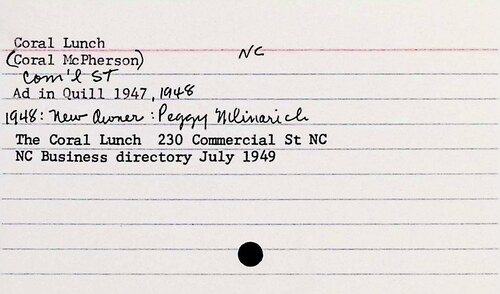 Coral Lunch
NC
(Coral McPherson)
Com'l ST
Ad in Quill 1947, 1948
1948: New Owner: Peggy Mlinarich
The Coral Lunch 230 Commercial St NC
NC Business directory July 1949